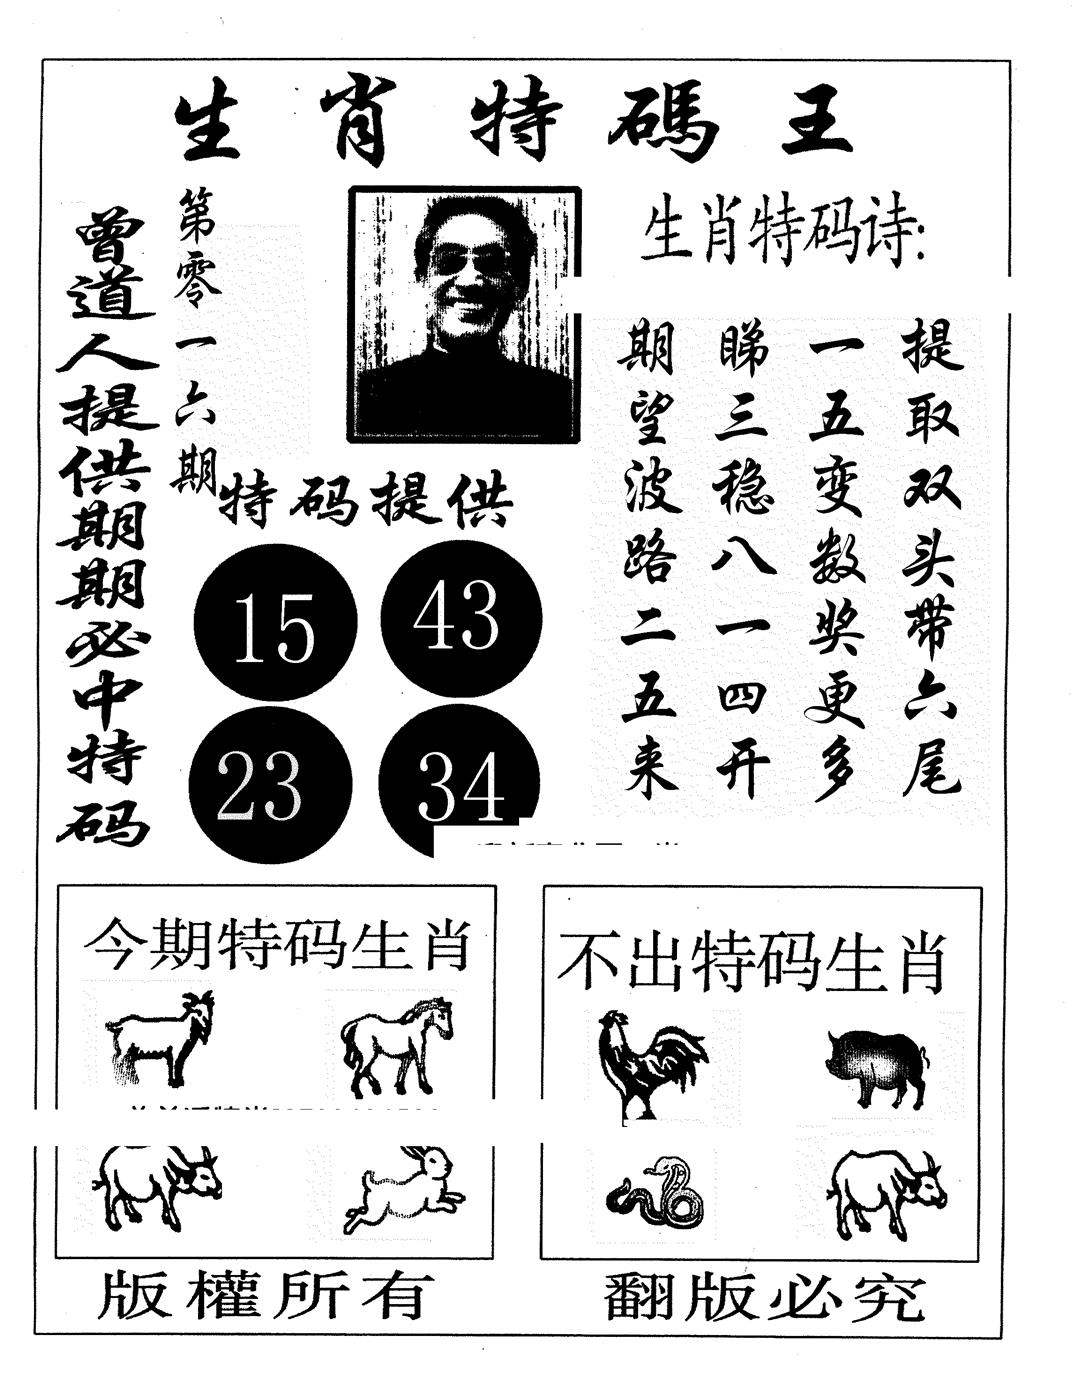 生肖特碼王
曾道人提供期期必中特码
第零一六期
生肖特码诗:
提取双头带六尾
一五变数奖更多
睇三稳八一四开
期望波路二五来
特码提供
15 43
23 34
今期特码生肖
不出特码生肖
版權所有
翻版必究